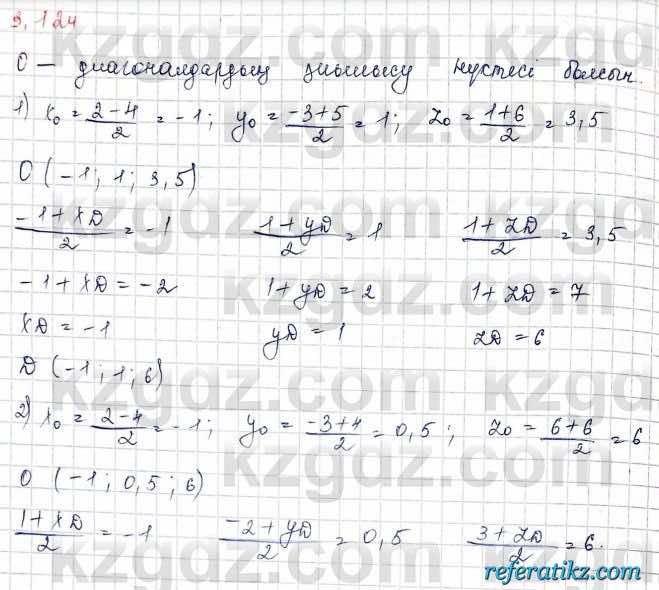 3.124
О — диагоналдардың қиылысу нүктесі болсын.
1) x₀ = (2-4)/2 = -1; y₀ = (-3+5)/2 = 1; z₀ = (1+6)/2 = 3,5
О (-1; 1; 3,5)
(-1+xD)/2 = -1 (1+yD)/2 = 1 (1+zD)/2 = 3,5
-1+xD = -2 1+yD = 2 1+zD = 7
xD = -1 yD = 1 zD = 6
D (-1; 1; 6)
2) x₀ = (2-4)/2 = -1; y₀ = (-3+4)/2 = 0,5; z₀ = (6+6)/2 = 6
О (-1; 0,5; 6)
(1+xD)/2 = -1 (-2+yD)/2 = 0,5 (3+zD)/2 = 6.
kzgdz.com
referatikz.com